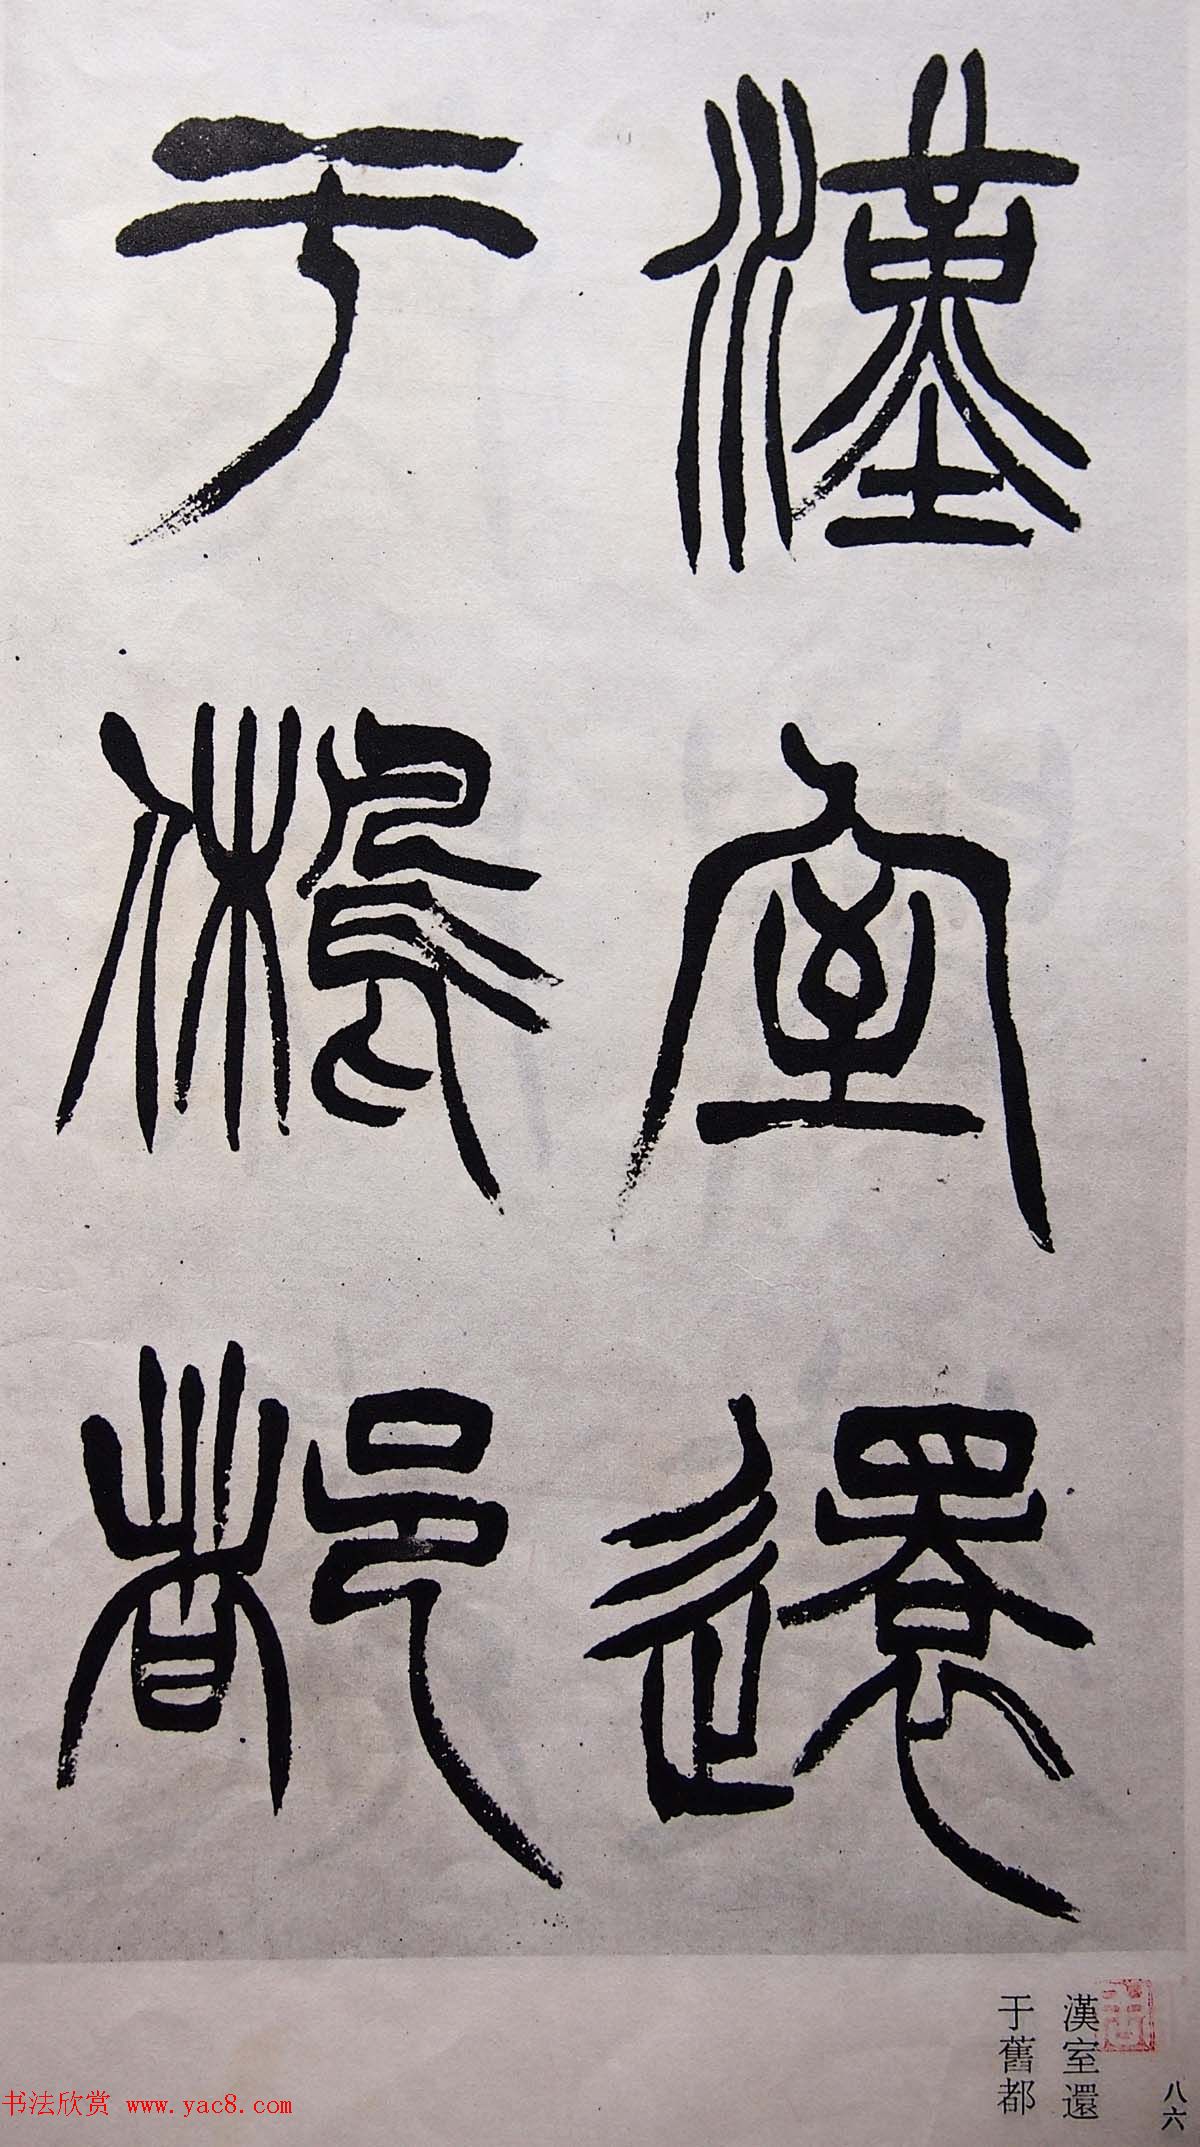 漢室還
于舊都
漢室還
于舊都
八六
书法欣赏 www.yac8.com